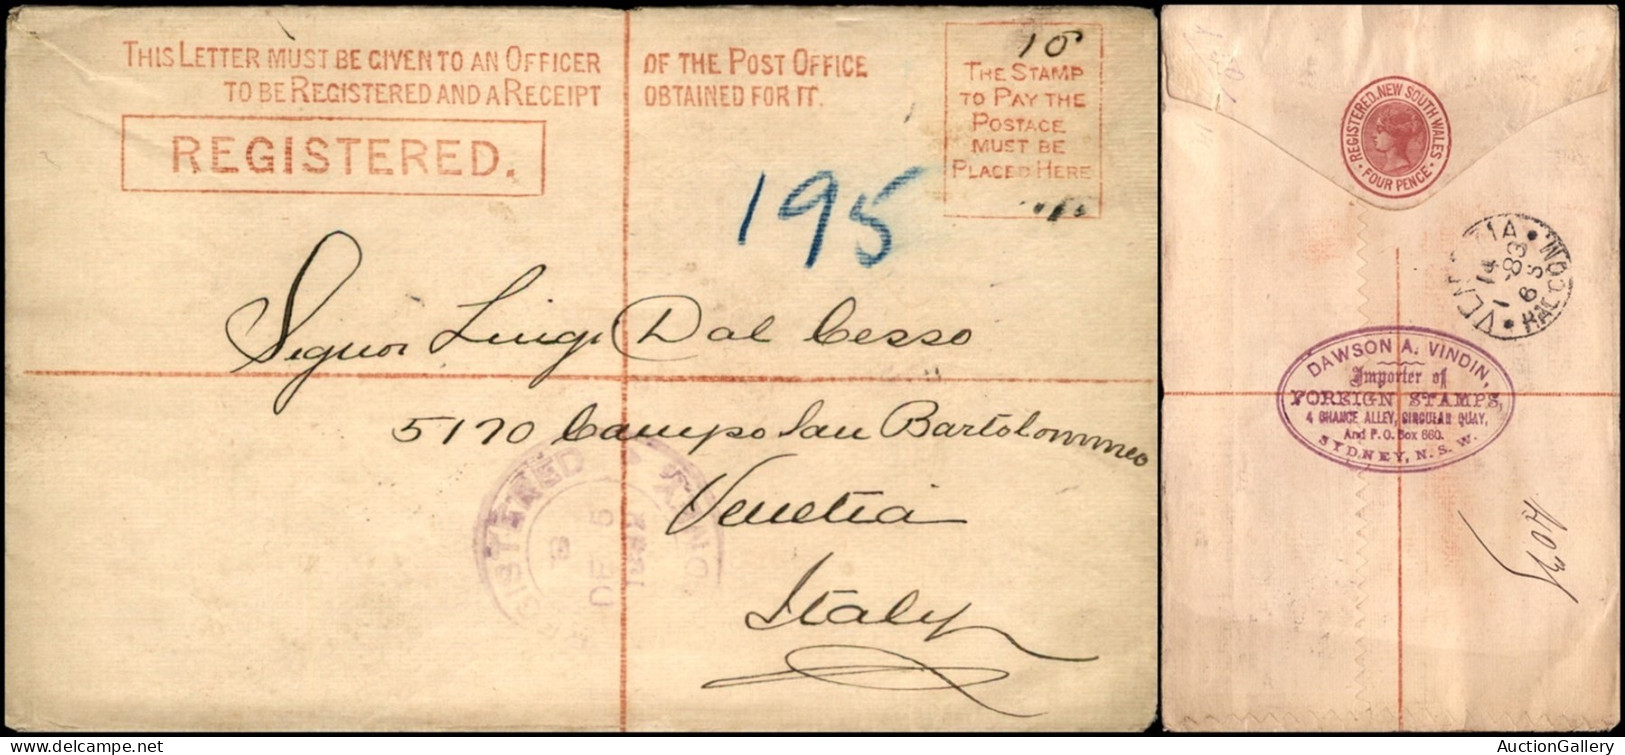 THIS LETTER MUST BE GIVEN TO AN OFFICER OF THE POST OFFICE
TO BE REGISTERED AND A RECEIPT OBTAINED FOR IT.
REGISTERED.
10
THE STAMP
TO PAY THE
POSTAGE
MUST BE
PLACED HERE
195
Signor Luigi Dal Cesso
5170 Campo San Bartolommeo
Venetia
Italy
REGISTERED
DE 5
REGISTERED. NEW SOUTH WALES
FOUR PENCE
14
1 -83
6 S
RACCOM
DAWSON A. VINDIN,
Importer of
FOREIGN STAMPS,
4 CHANGE ALLEY, CIRCULAR QUAY,
And P.O. Box 660.
SYDNEY, N. S. W.
AuctionGallery